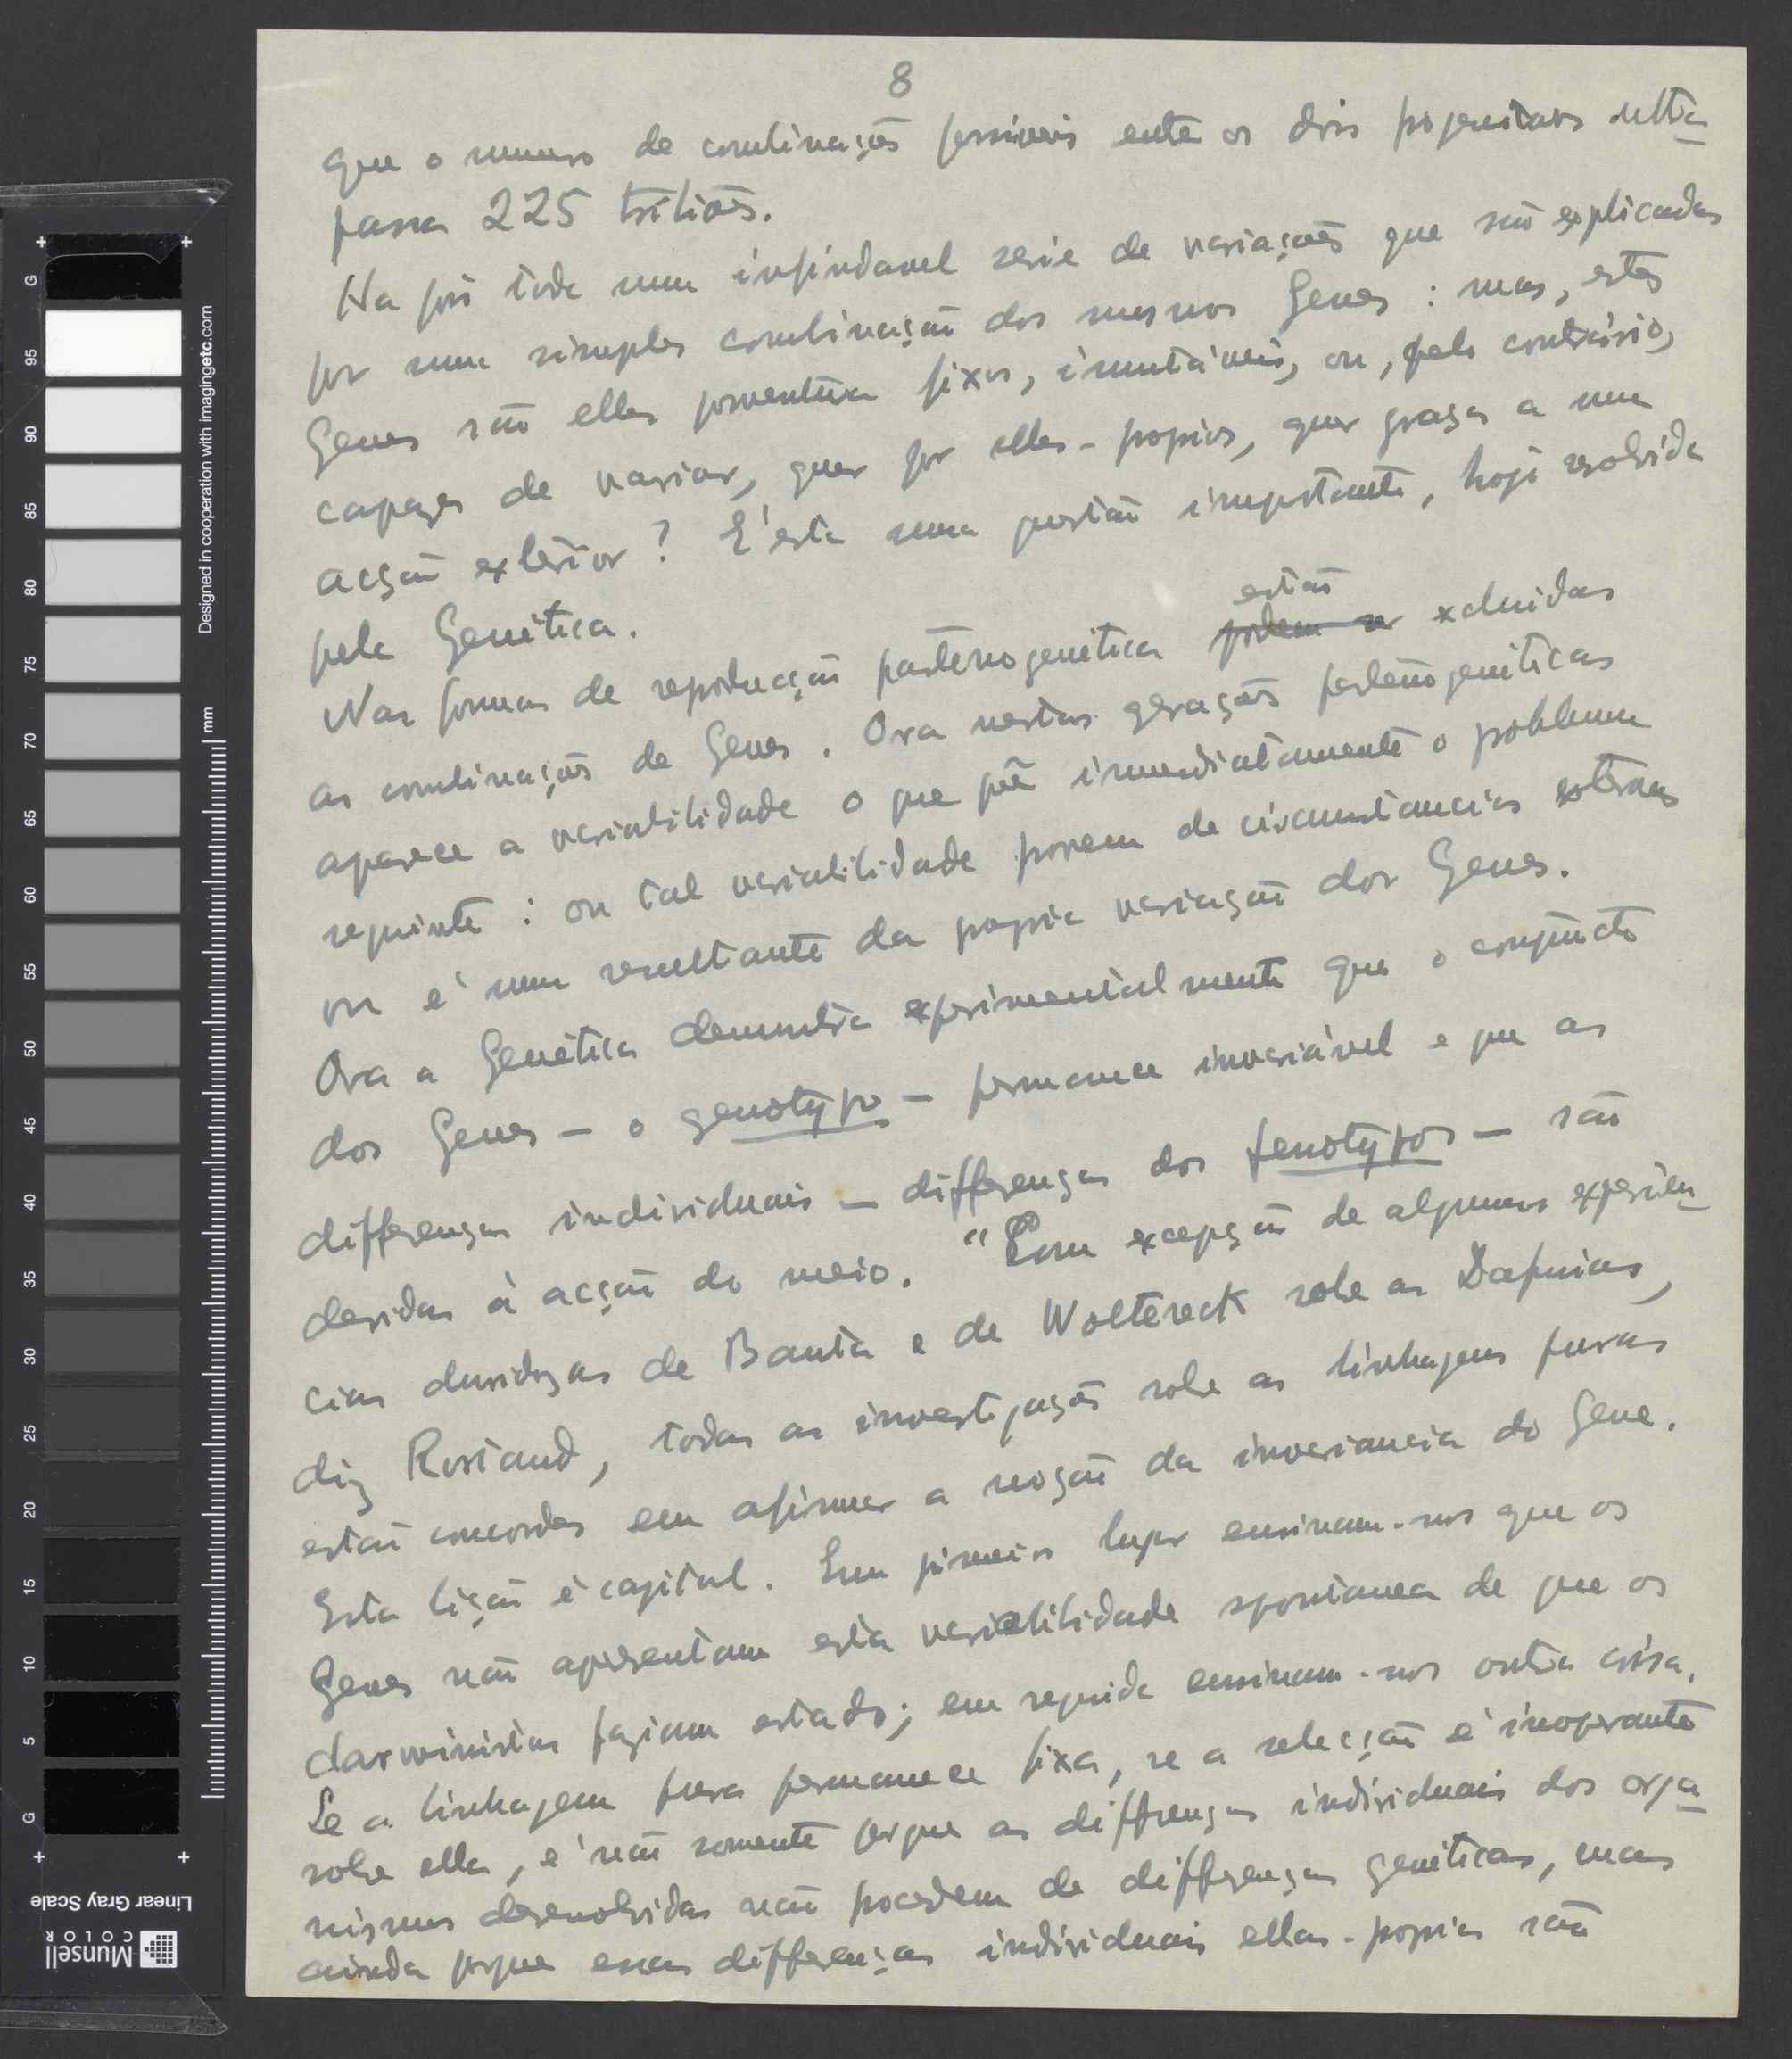 8
que o numero de combinações possiveis entre os dois progenitores ultra-
passa 225 triliões.
Ha pois toda uma infindavel serie de variações que são explicadas
por uma simples combinação dos mesmos Genes : mas, estes
Genes são elles porventura fixos, imutáveis, ou, pelo contrário,
capazes de variar, quer por elles-proprios, quer graças a uma
acção exterior? E' esta uma questão importante, hoje resolvida
pela Genética.
estão
Nas formas de reprodução partenogenetica podem ser excluidas
as combinações de Genes. Ora nestas gerações partenogeneticas
aparece a variabilidade o que põe immediatamente o problema
seguinte : ou tal variabilidade provem de circumstancias externas
ou é uma resultante da propria variação dos Genes.
Ora a Genética demonstra experimentalmente que o conjuncto
dos Genes - o genotypo - permanece invariável e que as
differenças individuais - differenças dos fenotypos - são
devidas à acção do meio. "Com excepção de algumas experien-
cias duvidozas de Banta e de Woltereck sobre as Dafnias,
diz Rostand, todas as investigações sobre as linhagens puras
estão concordes em afirmar a noção da invariancia do Gene.
Esta lição é capital. Em primeiro lugar ensinam-nos que os
Genes não apresentam esta variabilidade spontanea de que os
darwinistas faziam estado; em seguida ensinam-nos outra coisa.
Se a linhagem pura permanece fixa, se a selecção é inoperante
sobre ella, é não somente porque as differenças individuais dos orga-
nismos desenvolvidos não procedem de differenças genéticas, mas
ainda porque essas differenças individuais ellas-proprias são
Munsell
COLOR
Linear Gray Scale
Designed in cooperation with imagingetc.com
mm
G
95
90
85
80
75
70
65
60
55
50
45
40
35
30
25
20
15
10
5
G